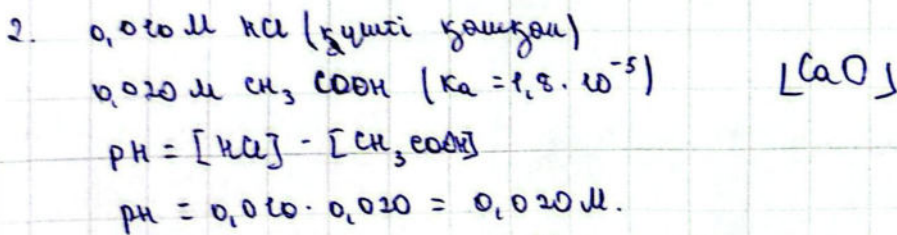 2. 0,010 M HCl (күшті қышқыл)
0,020 M CH₃COOH (Ka = 1,8·10⁻⁵) [CaO]
pH = [HCl] - [CH₃COOH]
pH = 0,010 · 0,020 = 0,020 M.